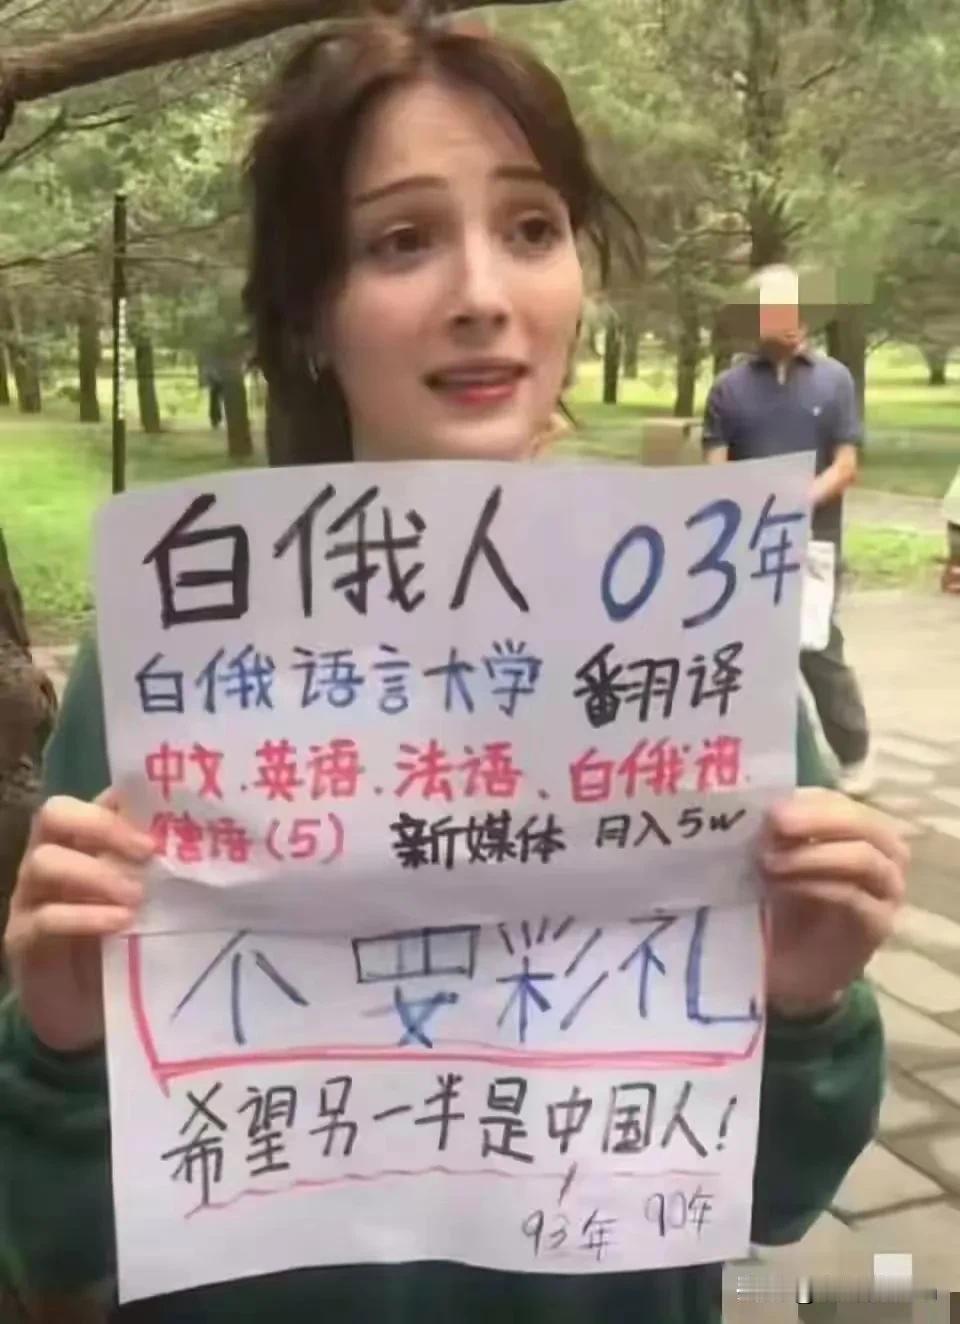 白俄人 03年
白俄语言大学 翻译
中文.英语.法语、白俄语.
语(5) 新媒体 月入5w
不要彩礼
希望另一半是中国人!
93年 90年